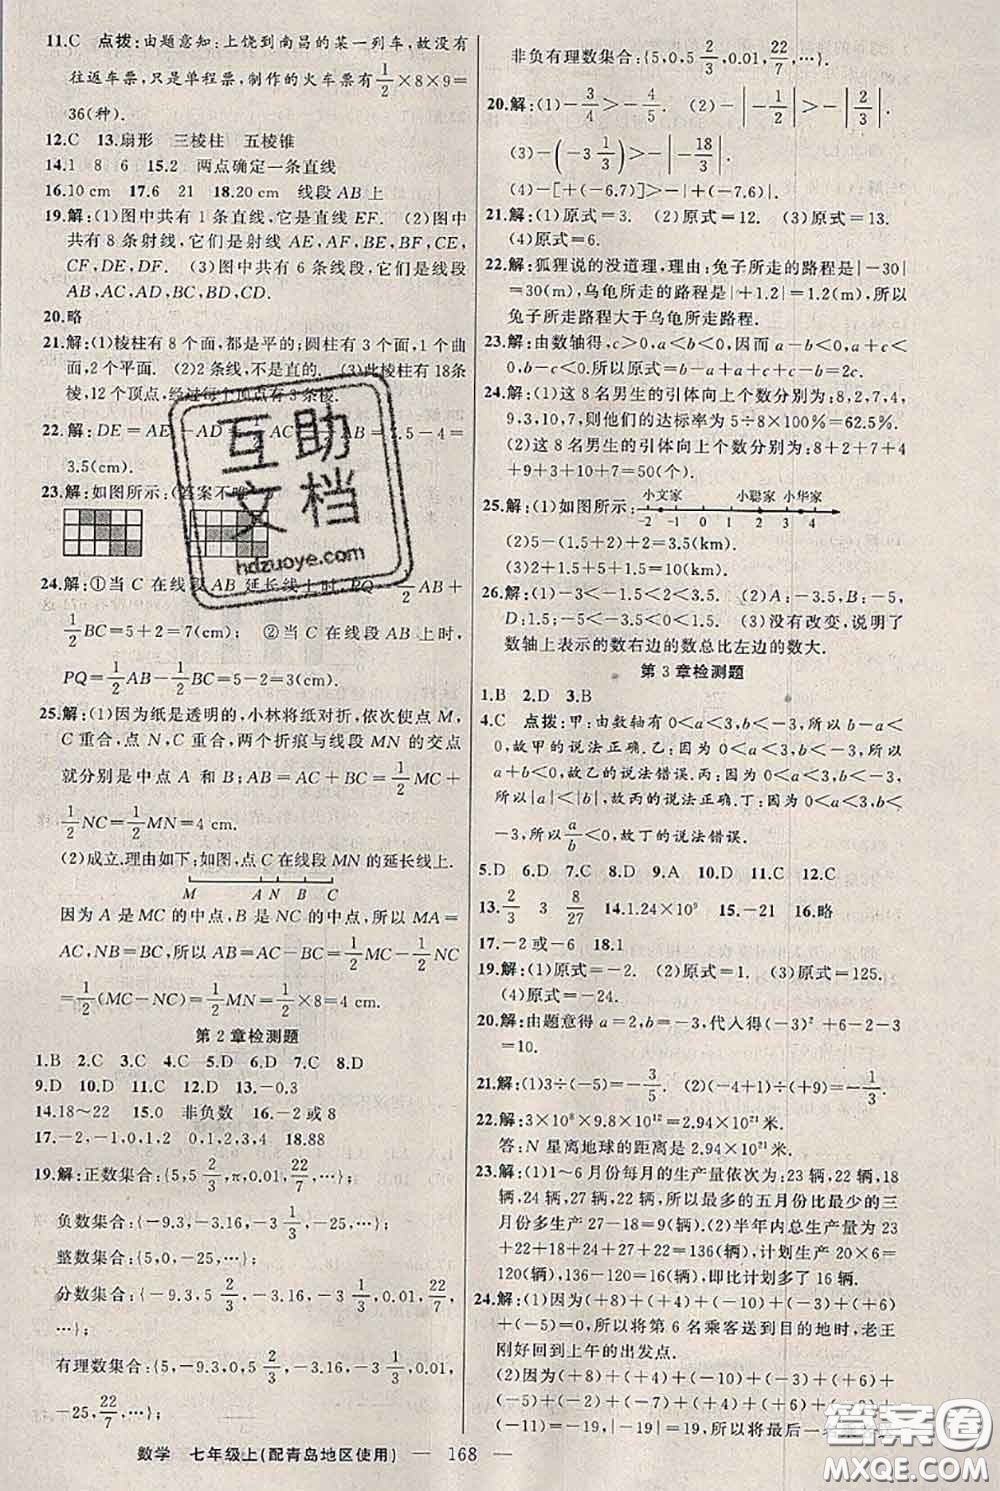 11.C 点拨:由题意知:上饶到南昌的某一列车,故没有
往返车票,只是单程票,制作的火车票有1/2×8×9=
36(种).
12.C 13.扇形 三棱柱 五棱锥
14.1 8 6 15.2 两点确定一条直线
16.10 cm 17.6 21 18.20 cm 线段 AB 上
19.解:(1)图中共有 1 条直线,它是直线 EF. (2)图中
共有 8 条射线,它们是射线 AE,AF,BE,BF,CE,
CF,DE,DF. (3)图中共有 6 条线段,它们是线段
AB,AC,AD,BC,BD,CD.
20.略
21.解:(1)棱柱有 8 个面,都是平的;圆柱有 3 个面,1 个曲
面,2 个平面. (2)2 条线,不是直的. (3)此棱柱有 18条
棱,12 个顶点,经过每个顶点有 3 条棱.
22.解:DE=AE-AD= .5-4=
3.5(cm).
23.解:如图所示:(答案不唯
24.解:①当 C 在线段 AB 延长线上时,PQ=1/2AB+
1/2BC=5+2=7(cm); ②当 C 在线段 AB 上时,
PQ=1/2AB-1/2BC=5-2=3(cm).
25.解:(1)因为纸是透明的,小林将纸对折,依次使点 M,
C 重合,点 N,C 重合,两个折痕与线段 MN 的交点
就分别是中点 A 和 B;AB=AC+BC=1/2MC+
1/2NC=1/2MN=4 cm.
(2)成立.理由如下:如图,点 C 在线段 MN 的延长线上.
M A N B C
因为 A 是 MC 的中点,B 是 NC 的中点,所以 MA=
AC,NB=BC,所以 AB=AC-BC=1/2MC-1/2NC
=1/2(MC-NC)=1/2MN=1/2×8=4 cm.
第 2 章检测题
1.B 2.C 3.C 4.C 5.D 6.D 7.C 8.D
9.D 10.D 11.C 12.D 13.-0.3
14.18~22 15.0 非负数 16.-2 或 8
17.-2,-1,0,1,2 0,1,2,3,4 18.88
19.解:正数集合:{5,5 2/3,π,0.01,22/7,…};
负数集合:{-9.3,-3.16,-3 1/3,-25,…};
整数集合:{5,0,-25,…};
分数集合:{-9.3,5 2/3,-3.16,-3 1/3,0.01,22/7,
…};
有理数集合:{5,-9.3,0,5 2/3,-3.16,-3 1/3,0.01,
-25,22/7,…};
非负有理数集合:{5,0,5 2/3,0.01,22/7,…}.
20.解:(1)-3/4>-4/5. (2)-|-1/2|>-|2/3|.
(3)-(-3 1/3)>-|-18/3|.
(4)-[+(-6.7)]>-|+(-7.6)|.
21.解:(1)原式=3. (2)原式=12. (3)原式=13.
(4)原式=6.
22.解:狐狸说的没道理,理由:兔子所走的路程是|-30|
=30(m),乌龟所走的路程是|+1.2|=1.2(m),所以
兔子所走路程大于乌龟所走路程.
23.解:由数轴得,c>0,a<b<0,因而 a-b<0,a-c
<0,b-c<0.所以原式=b-a+a+c+c-b=2c.
24.解:(1)这 8 名男生的引体向上个数分别为:8,2,7,4,
9,3,10,7,则他们的达标率为 5÷8×100%=62.5%.
(2)这 8 名男生的引体向上个数分别为:8+2+7+4
+9+3+10+7=50(个).
25.解:(1)如图所示: 小文家 小聪家 小华家
-2 -1 0 1 2 3 4
(2)5-(1.5+2)+2=3.5(km).
(3)2+1.5+5+1.5=10(km).
26.解:(1)-3<-1.5<2<3.5. (2)A:-3.5,B:-2,
D:1.5,-2<-1.5<1.5<3. (3)没有改变,说明了
数轴上表示的数右边的数总比左边的数大.
第 3 章检测题
1.B 2.D 3.B
4.C 点拨:甲:由数轴有 0<a<3,b<-3,所以 b-a<
0,故甲的说法正确.乙:因为 0<a<3,b<-3,所以 a
+b<0,故乙的说法错误.丙:因为 0<a<3,b<-3,
所以|a|<|b|,故丙的说法正确.丁:因为 0<a<3,b<
-3,所以a/b<0,故丁的说法错误.
5.D 6.D 7.C 8.D 9.A 10.D 11.C 12.C
13.2/3 3 8/27 14.1.24×10⁹ 15.-21 16.略
17.-2 或-6 18.1
19.解:(1)原式=-2. (2)原式=1. (3)原式=125.
(4)原式=-24.
20.解:由题意得 a=2,b=-3,代入得(-3)²+6-2-3
=10.
21.解:(1)3÷(-5)=-3/5. (2)(-3)÷(+9)=-1/3.
22.解:3×10⁸×9.8×10¹²=2.94×10²¹米.
答:N 星离地球的距离是 2.94×10²¹米.
23.解:(1)1~6 月份每月的生产量依次为:23 辆,22 辆,18
辆,24 辆,27 辆,22 辆,所以最多的五月份比最少的三
月份多生产 27-18=9(辆).(2)半年内总生产量为 23
+22+18+24+27+22=136(辆),计划生产 20×6=
120(辆),136-120=16(辆),比计划多了 16 辆.
24.解:(1)因为(+8)+(+4)+(-10)+(-3)+(+6)
+(-5)=0,所以将第 6 名乘客送到目的地时,老王
刚好回到上午的出发点.
(2)因为(+8)+(+4)+(-10)+(-3)+(+6)+
(-5)+(-2)+(-7)+(+4)+(+6)+(-9)+
(-11)=
所以将最后一
数学 七年级上(配青岛地区使用) — 168 —
互助
文档
hdzuoye.com
答案卷
MXQE.COM